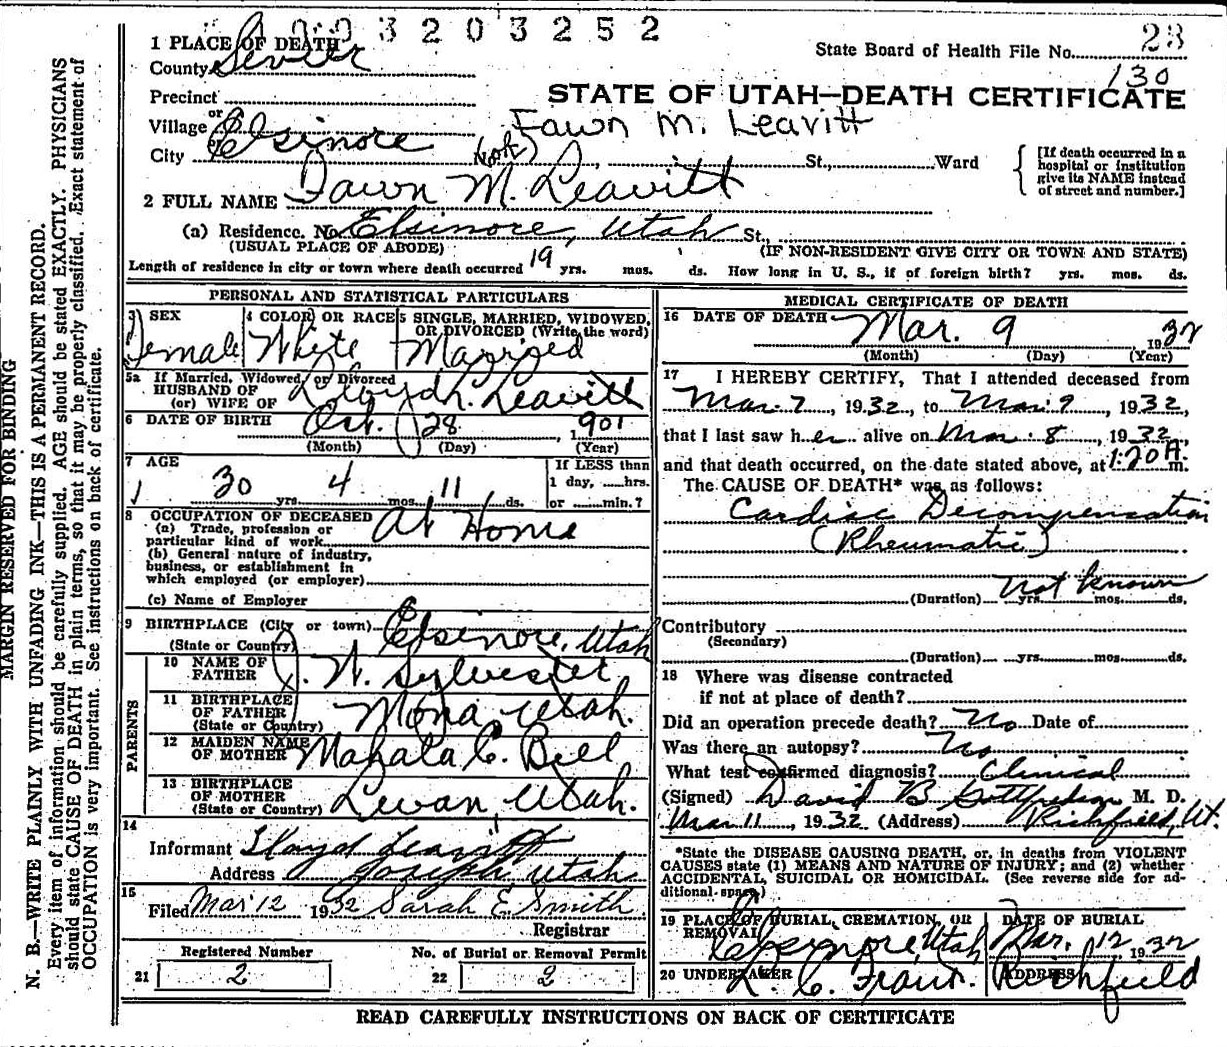 3203252
1 PLACE OF DEATH
County Sevier
State Board of Health File No. 23
130
Precinct
STATE OF UTAH—DEATH CERTIFICATE
or
Village Elsinore
Fawn M. Leavitt
or
City (No.) , hospital or St., Ward
[If death occurred in a hospital or institution give its NAME instead of street and number.]
2 FULL NAME Fawn M. Leavitt
(a) Residence. No. Elsinore, Utah St.,
(USUAL PLACE OF ABODE) (IF NON-RESIDENT GIVE CITY OR TOWN AND STATE)
Length of residence in city or town where death occurred 19 yrs. mos. ds. How long in U. S., if of foreign birth? yrs. mos. ds.
PERSONAL AND STATISTICAL PARTICULARS
3 SEX
Female
4 COLOR OR RACE
White
5 SINGLE, MARRIED, WIDOWED, OR DIVORCED (Write the word)
Married
5a If Married, Widowed, or Divorced
HUSBAND OF
(or) WIFE OF Lloyd L. Leavitt
6 DATE OF BIRTH Oct. 28, 1901
(Month) (Day) (Year)
7 AGE
30 yrs. 4 mos. 11 ds.
If LESS than
1 day, hrs.
or min.?
8 OCCUPATION OF DECEASED
(a) Trade, profession or
particular kind of work At Home
(b) General nature of industry,
business, or establishment in
which employed (or employer)
(c) Name of Employer
9 BIRTHPLACE (City or town) Elsinore, Utah
(State or Country)
PARENTS
10 NAME OF FATHER J. W. Sylvester
11 BIRTHPLACE OF FATHER Mona Utah.
(State or Country)
12 MAIDEN NAME OF MOTHER Mahala C. Bell
13 BIRTHPLACE OF MOTHER Levan, Utah.
(State or Country)
14
Informant Lloyd Leavitt
Address Joseph Utah.
15
Filed Mar 12 1932 Sarah E Smith
Registrar
Registered Number
21 2
No. of Burial or Removal Permit
22 2
MEDICAL CERTIFICATE OF DEATH
16 DATE OF DEATH Mar. 9 1932
(Month) (Day) (Year)
17 I HEREBY CERTIFY, That I attended deceased from
Mar. 7, 1932, to Mar. 9, 1932,
that I last saw her alive on Mar. 8, 1932,
and that death occurred, on the date stated above, at 1:20 A. m.
The CAUSE OF DEATH* was as follows:
Cardiac Decompensation
(Rheumatic)
(Duration) not known yrs. mos. ds.
Contributory
(Secondary)
(Duration) yrs. mos. ds.
18 Where was disease contracted
if not at place of death?
Did an operation precede death? No Date of
Was there an autopsy? No
What test confirmed diagnosis? Clinical
(Signed) David B Gottfredson M. D.
Mar 11, 1932 (Address) Richfield, Ut.
*State the DISEASE CAUSING DEATH, or, in deaths from VIOLENT
CAUSES state (1) MEANS AND NATURE OF INJURY; and (2) whether
ACCIDENTAL, SUICIDAL OR HOMICIDAL. (See reverse side for additional space.)
19 PLACE OF BURIAL, CREMATION, OR REMOVAL
Elsinore, Utah
DATE OF BURIAL
Mar. 12 1932
20 UNDERTAKER
ADDRESS
Richfield
READ CAREFULLY INSTRUCTIONS ON BACK OF CERTIFICATE
MARGIN RESERVED FOR BINDING
N. B.—WRITE PLAINLY WITH UNFADING INK—THIS IS A PERMANENT RECORD.
Every item of information should be carefully supplied. AGE should be stated EXACTLY. PHYSICIANS
should state CAUSE OF DEATH in plain terms, so that it may be properly classified. Exact statement of
OCCUPATION is very important. See instructions on back of certificate.